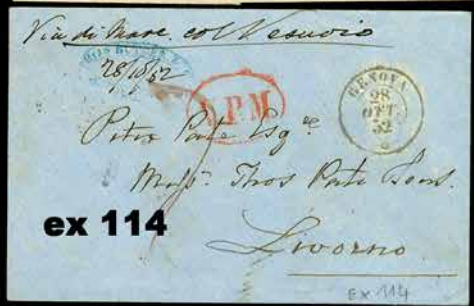 Via di Mare. col Vesuvio
28/10/52
V.P.M
GENOVA
28
OTT
52
Esqre
Messrs. Thos Pate Sons.
Livorno
ex 114
Ex 114